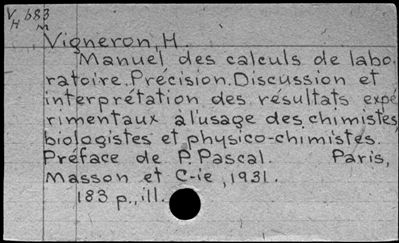 V 683
H M
Vigneron, H.
Manuel des calculs de labo-
ratoire. Précision. Discussion et
interprétation des résultats expé-
rimentaux à l'usage des chimistes,
biologistes et physico-chimistes.
Préface de P. Pascal. Paris,
Masson et C-ie, 1931.
183 p., ill.